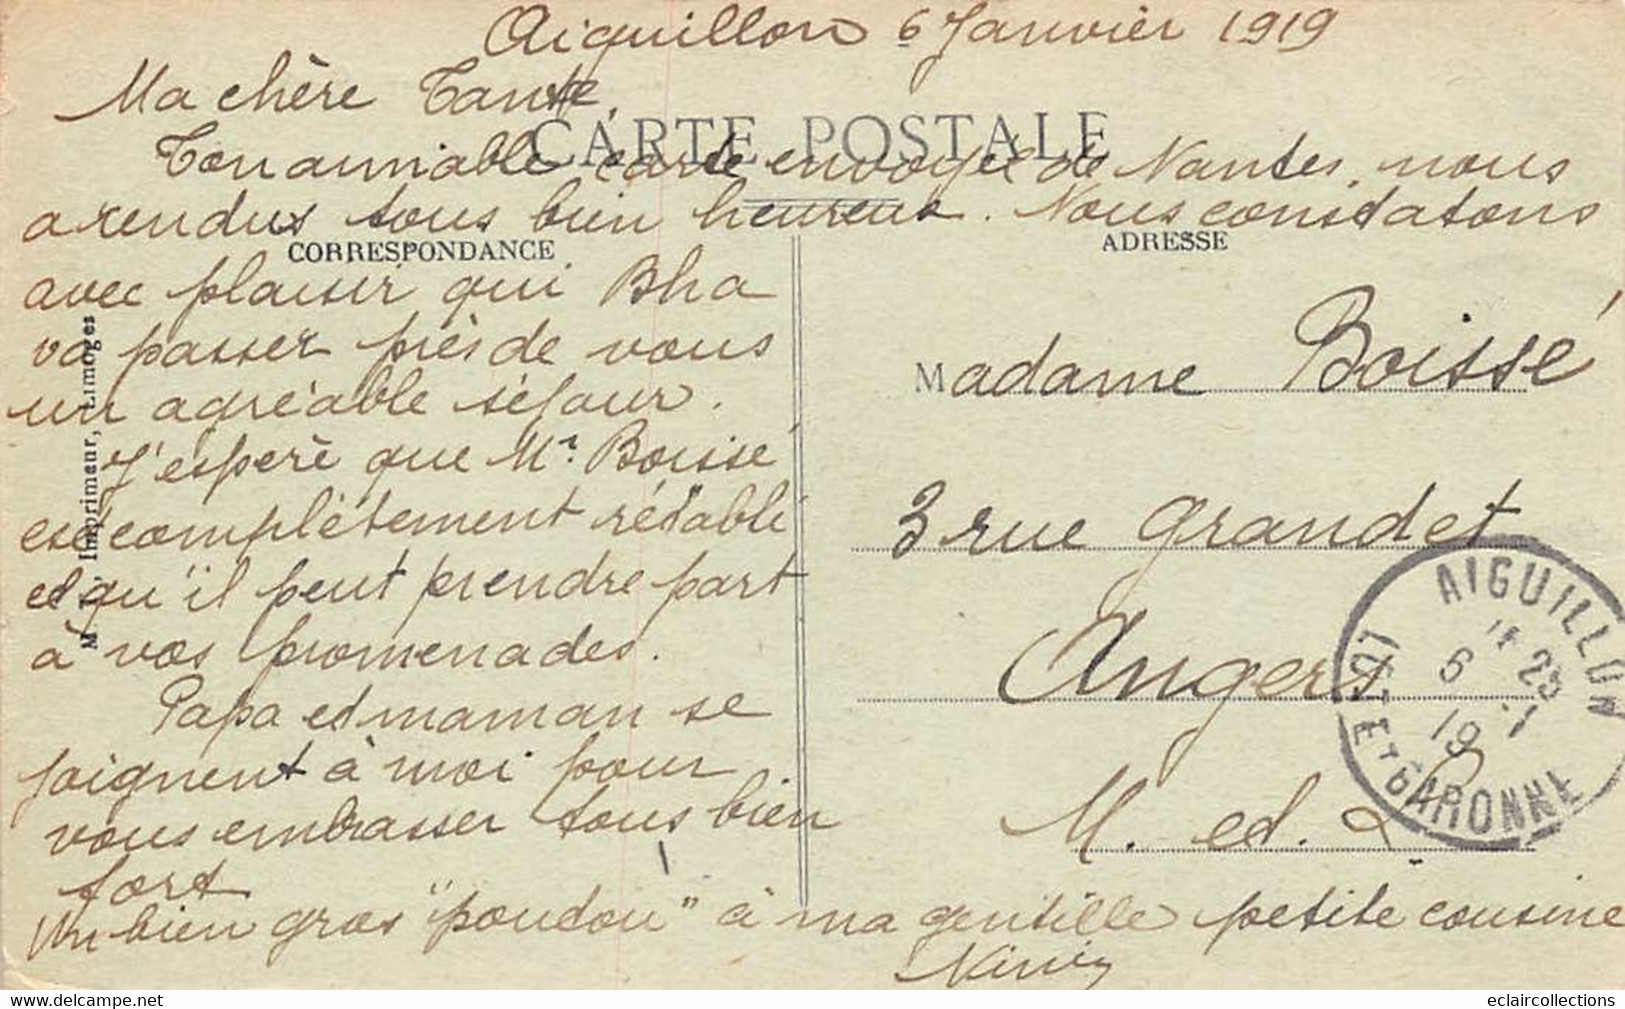 Aiguillon 6 Janvier 1919
Ma chère Tante,
CARTE POSTALE
Ton aimable carte envoyée de Nantes, nous
a rendus tous bien heureux. Nous constatons
CORRESPONDANCE
avec plaisir qui Bha
va passer près de vous
un agréable séjour.
J'espère que Mr. Boissé
est complètement rétabli
et qu'il peut prendre part
à vos promenades.
Papa et maman se
joignent à moi pour
vous embrasser tous bien
fort
Un bien gros "poutou" à ma gentille petite cousine
ADRESSE
Madame Boissé
3 rue Grandet
Angers
M. et. L
AIGUILLON
6 - 1
19
LOT-ET-GARONNE
Imprimeur, Limoges
eclaircollections